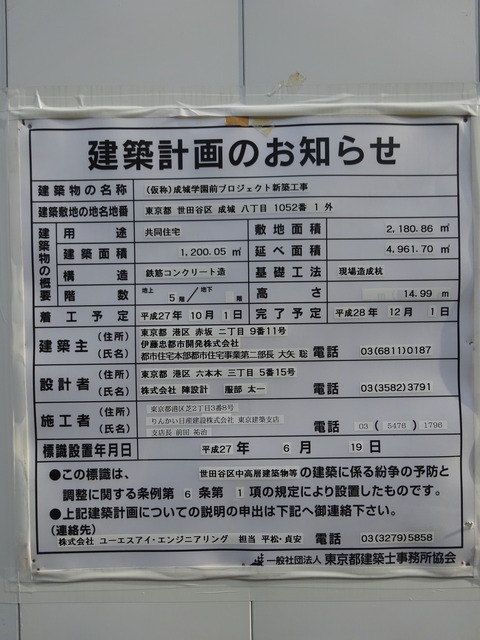 建築計画のお知らせ
建築物の名称 (仮称)成城学園前プロジェクト新築工事
建築敷地の地名地番 東京都 世田谷区 成城 八丁目 1052番 1 外
建築物の概要
用途 共同住宅 敷地面積 2,180.86 ㎡
建築面積 1,200.05 ㎡ 延べ面積 4,961.70 ㎡
構造 鉄筋コンクリート造 基礎工法 現場造成杭
階数 地上 5 階/地下 階 高さ 14.99 m
着工予定 平成27年 10月 1日 完了予定 平成28年 12月 1日
建築主 (住所) 東京都 港区 赤坂 二丁目 9番11号
(氏名) 伊藤忠都市開発株式会社
都市住宅本部都市住宅事業第二部長 大矢 聡 電話 03(6811)0187
設計者 (住所) 東京都 港区 六本木 三丁目 5番15号
(氏名) 株式会社 陣設計 服部 太一 電話 03(3582)3791
施工者 (住所) 東京都港区芝2丁目3番8号
(氏名) りんかい日産建設株式会社 東京建築支店
支店長 前田 祐治 電話 03(5476)1796
標識設置年月日 平成27年 6月 19日
●この標識は、世田谷区中高層建築物等の建築に係る紛争の予防と
調整に関する条例第 6 条第 1 項の規定により設置したものです。
●上記建築計画についての説明の申出は下記へ御連絡下さい。
(連絡先)
株式会社 ユーエスアイ・エンジニアリング 担当 平松・貞安 電話 03(3279)5858
一般社団法人 東京都建築士事務所協会